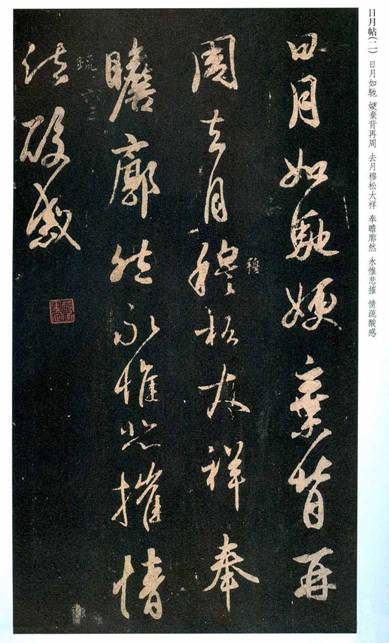 日月帖(二) 日月如馳 嫂棄背再周 去月穆松大祥 奉瞻廓然 永惟悲摧 情疏酸感
日月如馳嫂棄背再
周去月穆松大祥奉
穆
瞻廓然永惟悲摧情
疏
酸感